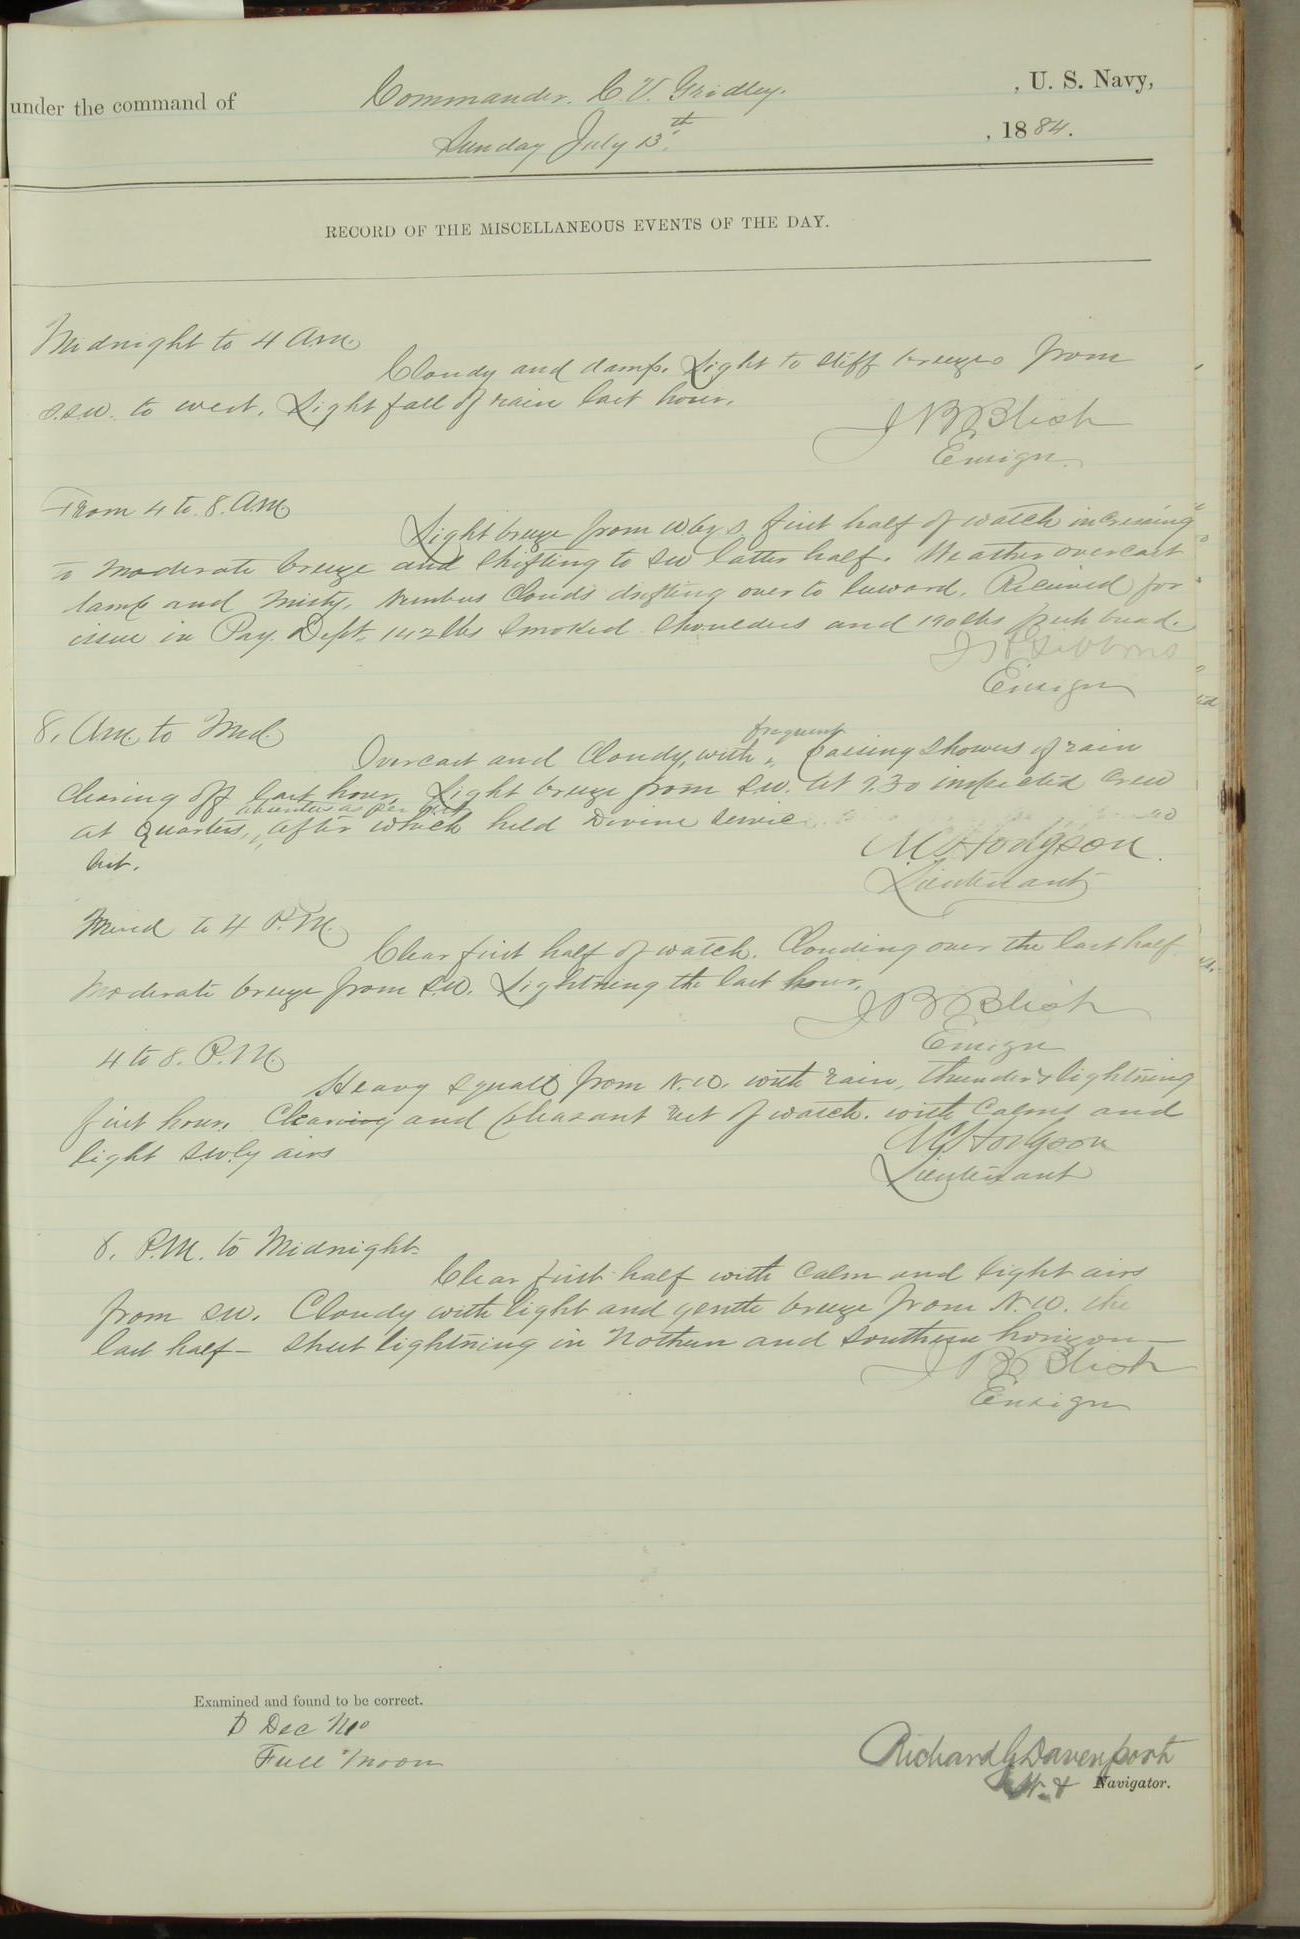 under the command of Commander. C. V. Gridley. , U. S. Navy,
Sunday July 13th. , 1884.
RECORD OF THE MISCELLANEOUS EVENTS OF THE DAY.
Midnight to 4 A.M.
Cloudy and damp. Light to stiff breezes from
S.S.W. to west. Light fall of rain last hour.
J B Blish
Ensign.
From 4 to 8. A.M.
Light breeze from W by S. first half of watch increasing
to moderate breeze and shifting to SW latter half. Weather overcast
damp and misty. Nimbus clouds drifting over to leeward. Received for
issue in Pay. Dept. 142 lbs smoked shoulders and 190 lbs fresh bread.
J H Gibbons
Ensign
8. A.M. to Mid.
Overcast and Cloudy, with frequent passing showers of rain
clearing off last hour. Light breeze from S.W. At 9.30 inspected crew
at quarters, absentees as per list after which held Divine Service
list.
Lieutenant
Merid to 4 P.M.
Clear first half of watch. Clouding over the last half.
Moderate breeze from S.W. Lightning the last hour.
J B Blish
Ensign
4 to 8. P.M.
Heavy squall from N.W. with rain, thunder & lightning
first hour. Clearing and pleasant rest of watch. with Calms and
light SW.ly airs
Hodgson
Lieutenant
8. P.M. to Midnight-
Clear first half with calm and light airs
from SW. Cloudy with light and gentle breeze from N.W. the
last half- Sheet lightning in Nothern and Southern horizon-
J B Blish
Ensign
Examined and found to be correct.
D Dec Mo
Full Moon
Richard G Davenport
Navigator.